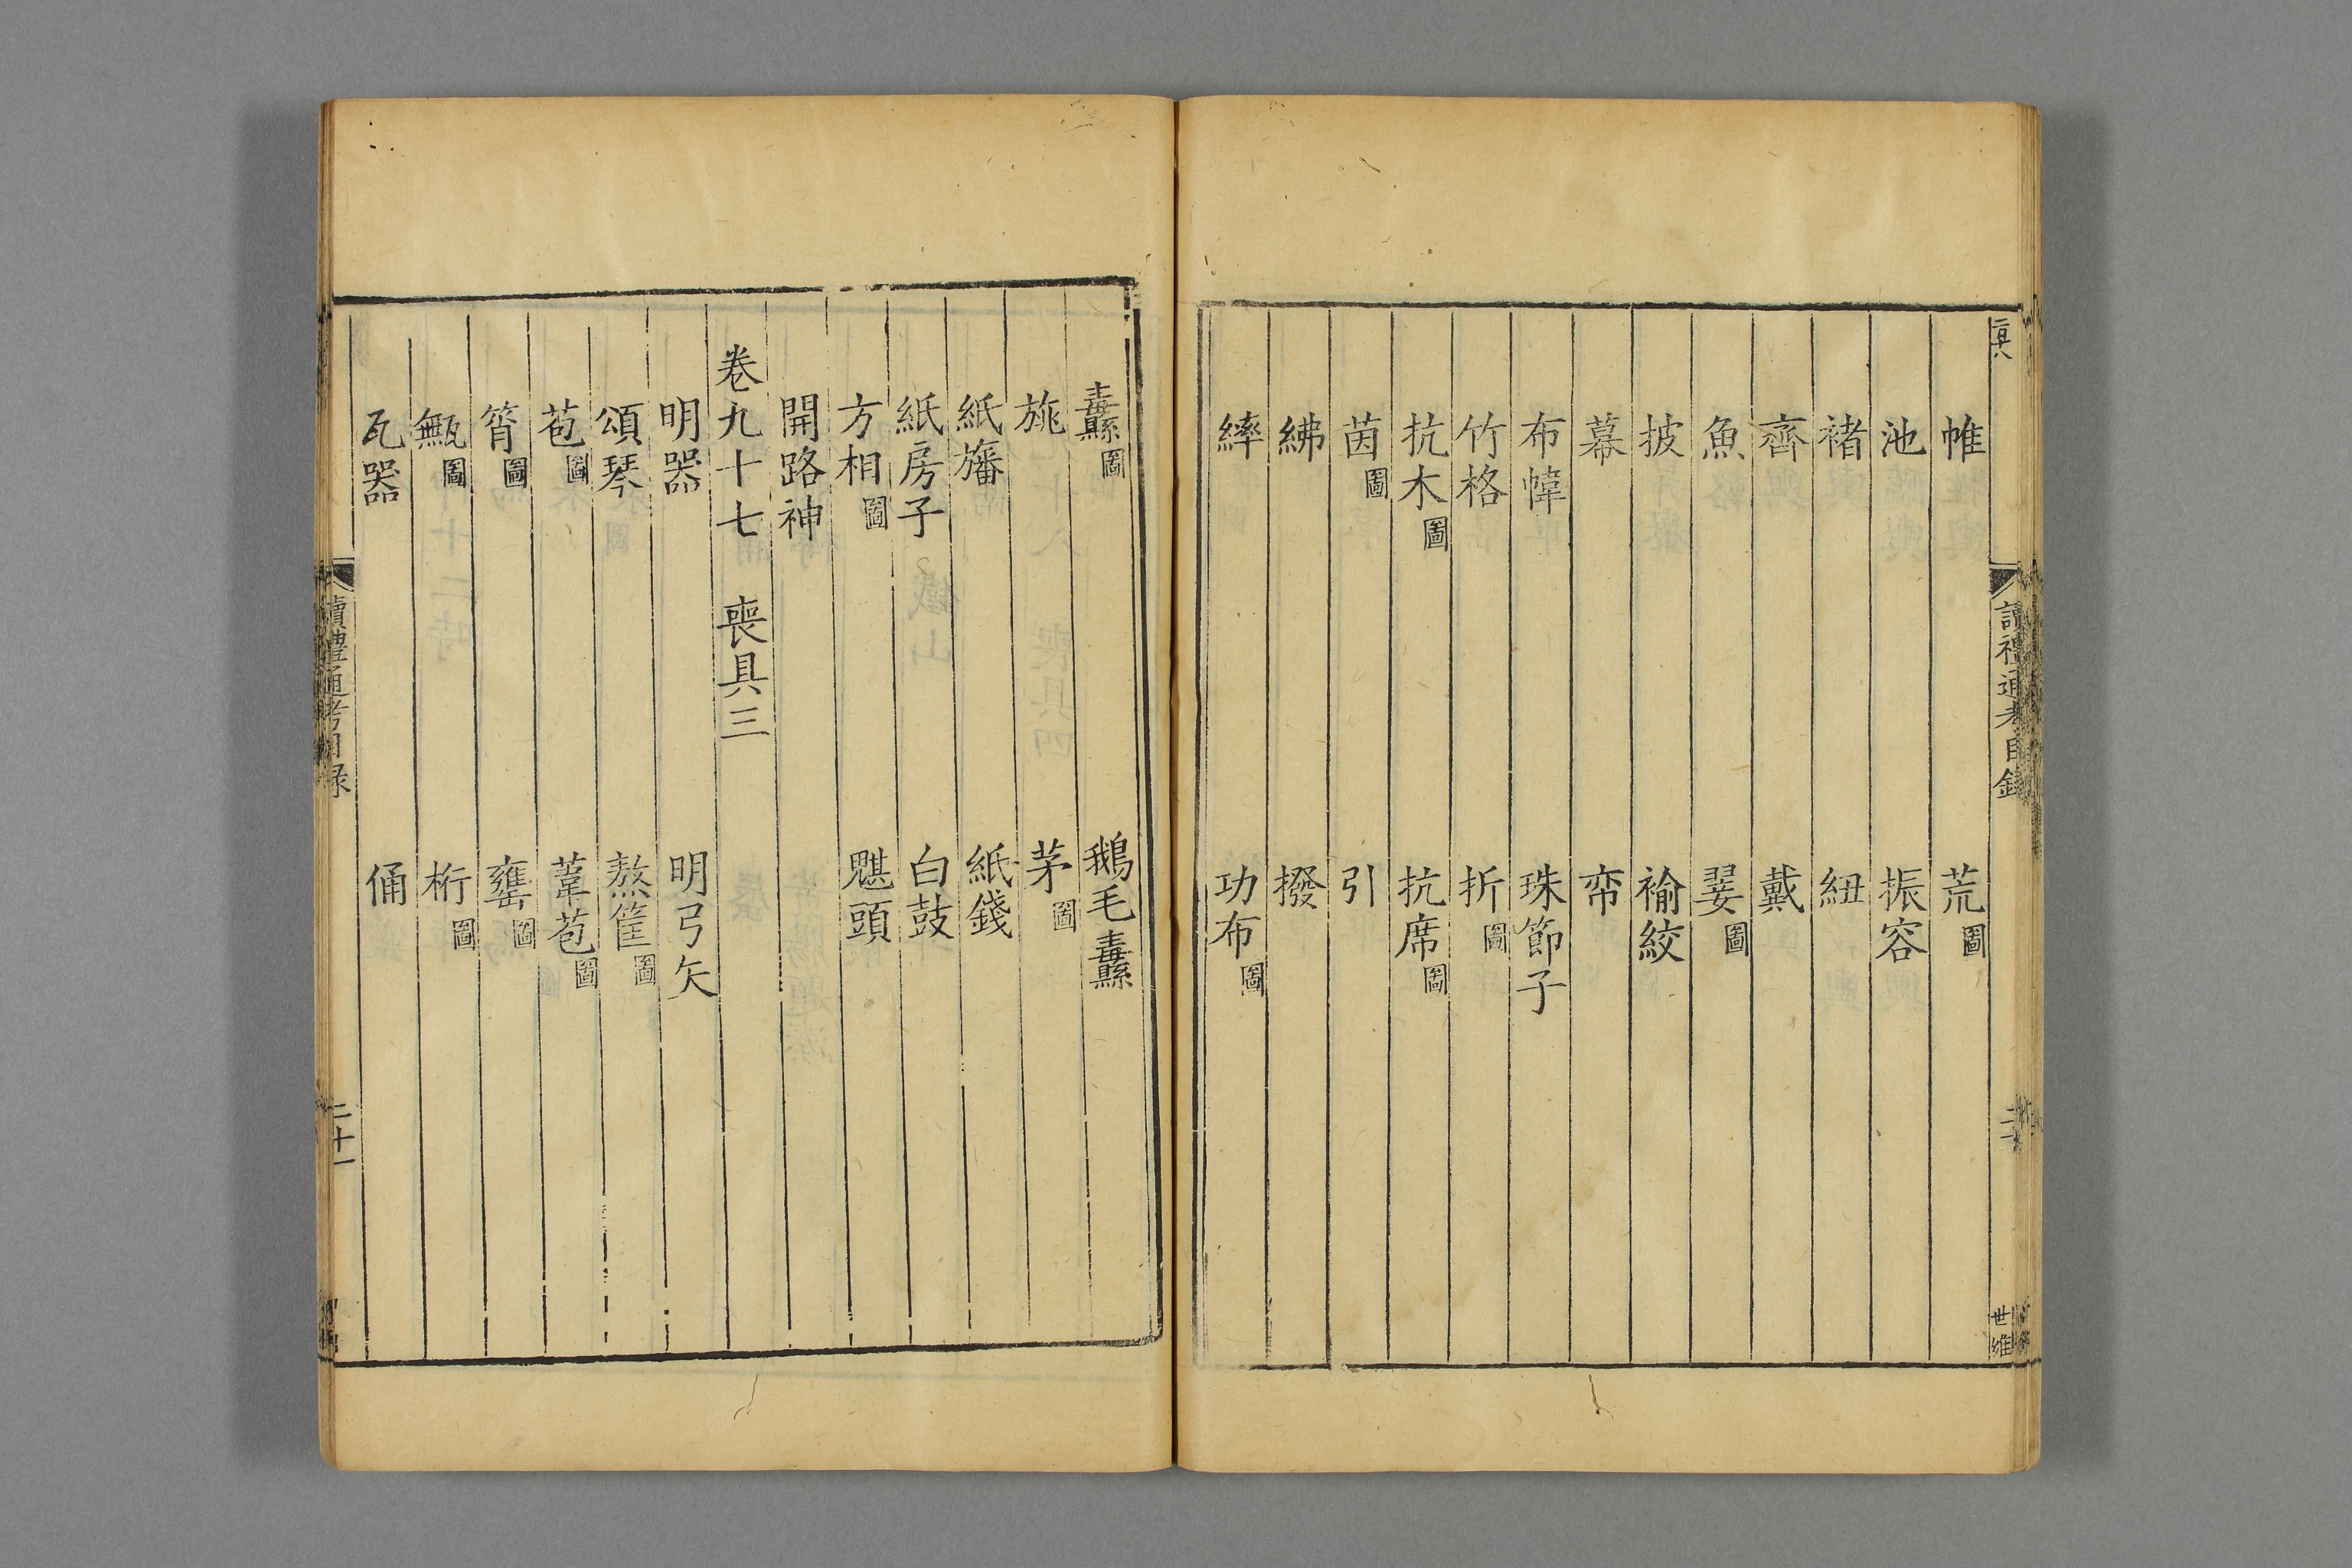 帷 荒圖
池 振容
褚 紐
齊 戴
魚 翣圖
披 褕絞
幕 帟
布幃 珠節子
竹格 折圖
抗木圖 抗席圖
茵圖 引
紼 撥
繂 功布圖
纛圖 鵝毛纛
旐 茅圖
紙旛 紙錢
紙房子 白鼓
方相圖 魌頭
開路神
卷九十七 喪具三
明器 明弓矢
頌琴 熬筐圖
苞圖 葦苞圖
筲圖 罋圖
甒圖 桁圖
瓦器 俑
讀禮通考目錄
二十一
讀禮通考目錄
世維